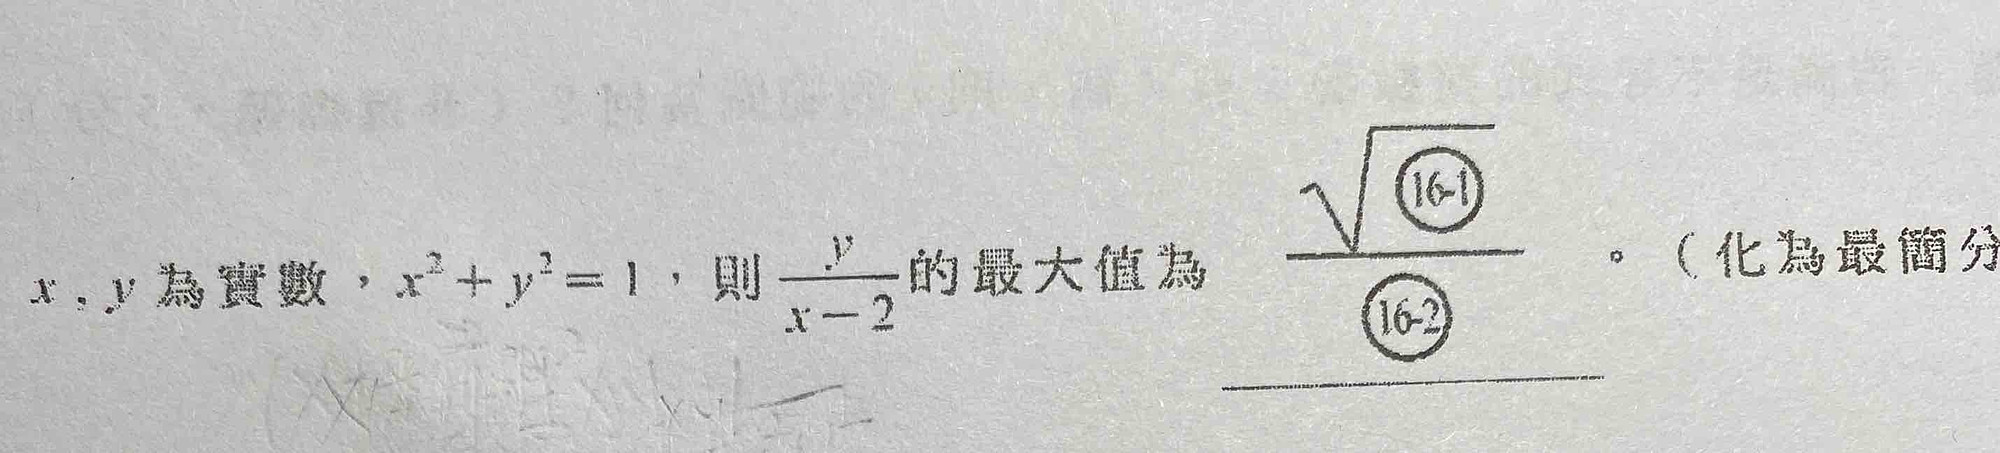 x，y 為實數，x²＋y²＝1，則 y/(x－2) 的最大值為 √(16-1)/(16-2)。（化為最簡分